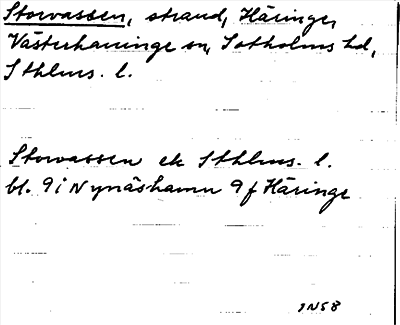 Storvassen, strand, Häringe,
Västerhaninge sn, Sotholms hd,
Sthlms. l.
Storvassen ek Sthlms. l.
bl. 9i Nynäshamn 9f Häringe
JN58